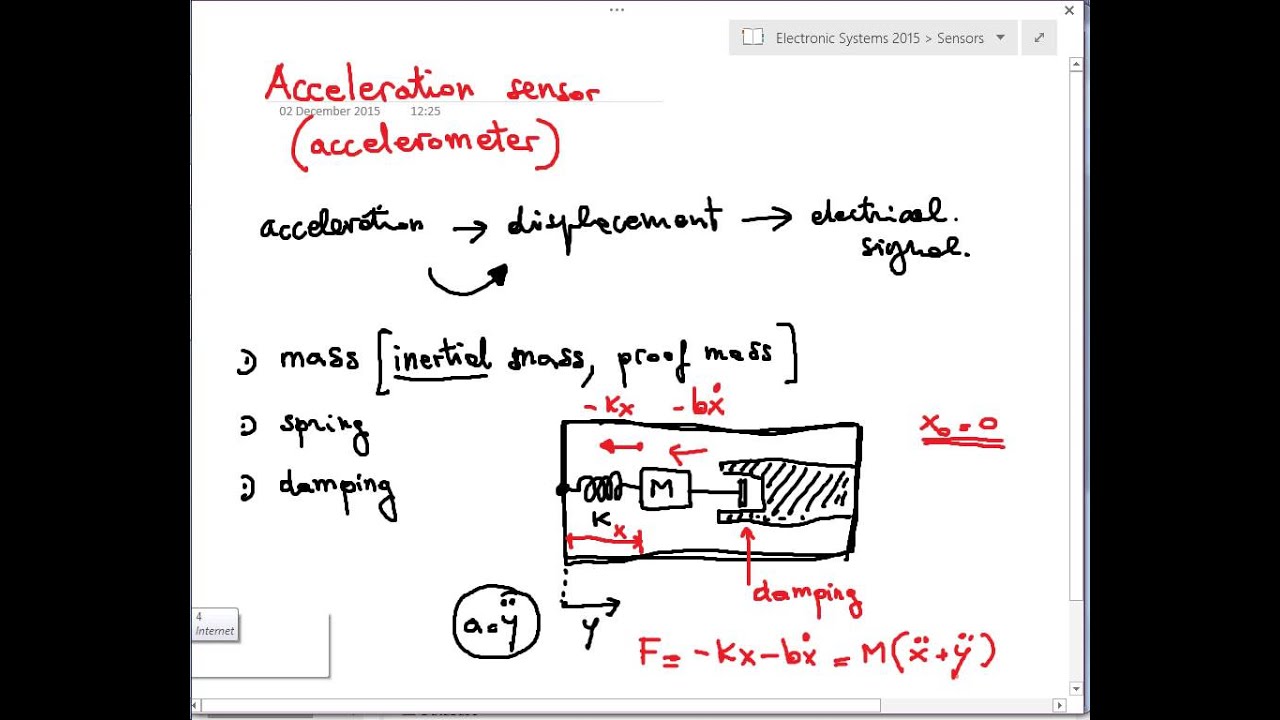 Electronic Systems 2015 > Sensors
Acceleration sensor
02 December 2015 12:25
(accelerometer)
acceleration → displacement → electrical
signal.
1) mass [inertial mass, proof mass]
-Kx -bẋ
2) spring
x₀ = 0
M
3) damping
K
x
damping
a = ÿ
y
F = -Kx - bẋ = M(ẍ + ÿ)
4
Internet